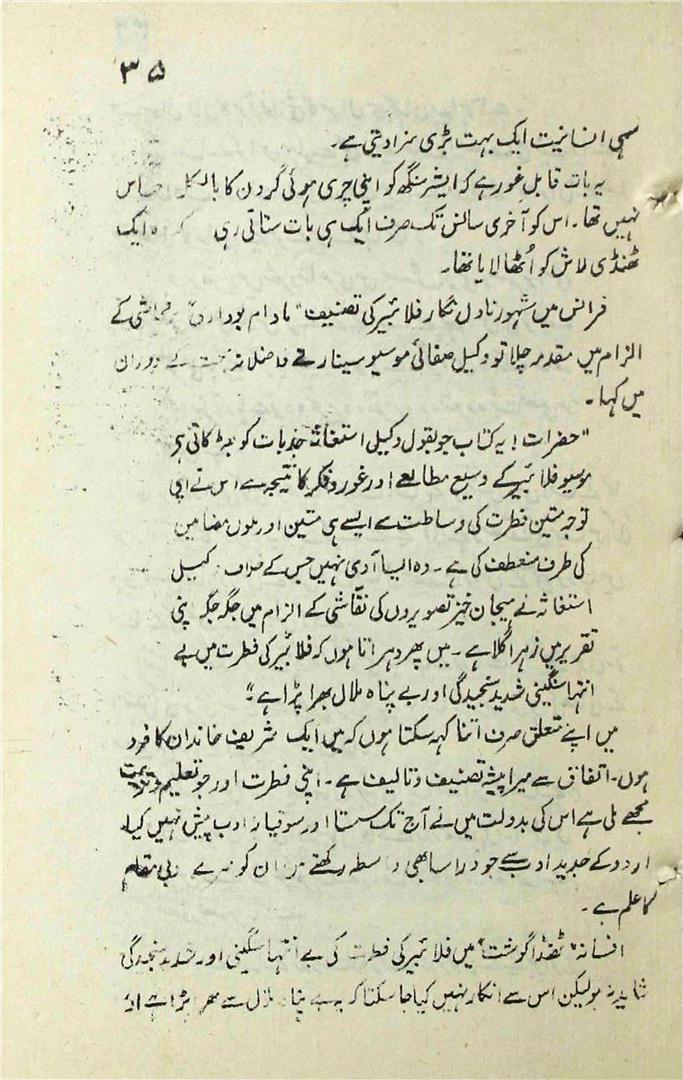 ۳۵
سہی انسانیت ایک بہت بڑی سزا دیتی ہے۔
یہ بات قابلِ غور ہے کہ ایشر سنگھ کو اپنی چری ہوئی گردن کا بالکل احساس
نہیں تھا۔ اس کو آخری سانس تک صرف ایک ہی بات ستاتی رہی کہ وہ ایک
ٹھنڈی لاش کو اُٹھا لایا تھا۔
فرانس میں مشہور ناول نگار فلابیئر کی تصنیف "مادام بوداری" پر فحاشی کے
الزام میں مقدمہ چلا تو وکیل صفائی موسیو سینار نے فاضلانہ بحث کے دوران
میں کہا۔
"حضرات! یہ کتاب جو بقول وکیل استغاثہ جذبات کو بھڑکاتی ہے
موسیو فلابیئر کے وسیع مطالعے اور غور و فکر کا نتیجہ ہے اس نے اپنی
توجہ متین فطرت کی وساطت سے ایسے ہی متین اور ملول مضامین
کی طرف منعطف کی ہے۔ وہ ایسا آدمی نہیں جس کے خلاف وکیل
استغاثہ نے ہیجان خیز تصویروں کی نقاشی کے الزام میں جگہ جگہ اپنی
تقریر میں زہر اگلا ہے۔ میں پھر دہراتا ہوں کہ فلابیئر کی فطرت میں بے
انتہا سنگینی شدید سنجیدگی اور بے پناہ ملال بھرا پڑا ہے"
میں اپنے متعلق صرف اتنا کہہ سکتا ہوں کہ میں ایک شریف خاندان کا فرد
ہوں۔ اتفاق سے میرا پیشہ تصنیف و تالیف ہے۔ اپنی فطرت اور جو تعلیم و تربیت
مجھے ملی ہے اس کی بدولت میں نے آج تک سستا اور سوقیانہ ادب پیش نہیں کیا۔
اردو کے جدید ادب سے جو ذرا سا بھی واسطہ رکھتے ہیں ان کو میرے ادبی مقام
کا علم ہے۔
افسانہ "ٹھنڈا گوشت" میں فلابیئر کی فطرت کی بے انتہا سنگینی اور شدید سنجیدگی
شاید نہ ہو لیکن اس سے انکار نہیں کیا جا سکتا کہ یہ بے پناہ ملال سے بھرا پڑا ہے اور